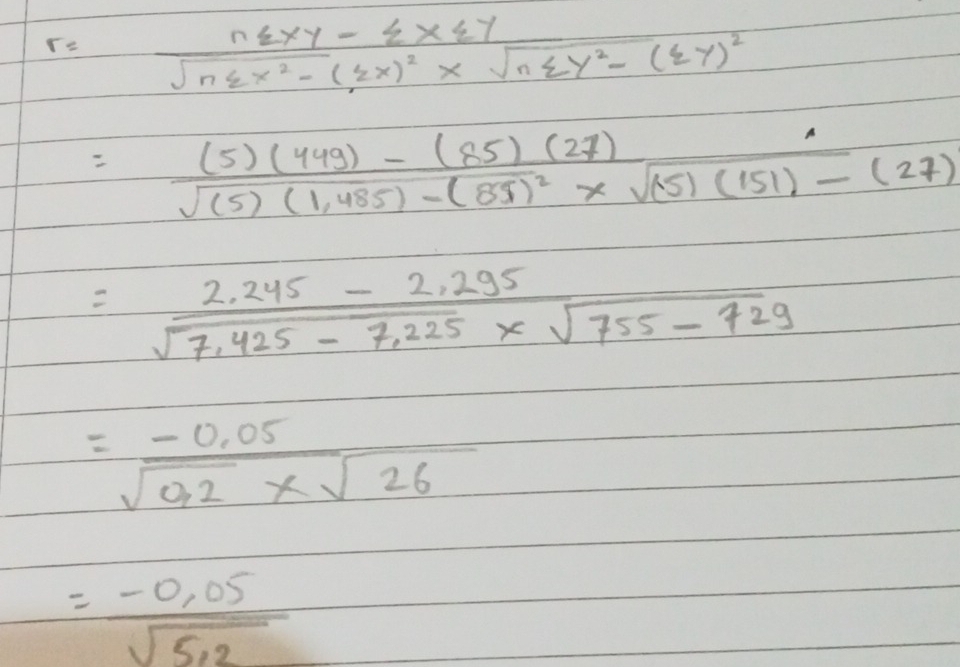 r= nΣxy - ΣxΣy
√nΣx² - (Σx)² × √nΣy² - (Σy)²
= (5)(449) - (85)(27)
√(5)(1,485) - (85)² × √(5)(151) - (27)
= 2.245 - 2.295
√7.425 - 7,225 × √755 - 729
= -0,05
√0,2 × √26
= -0,05
√5,2